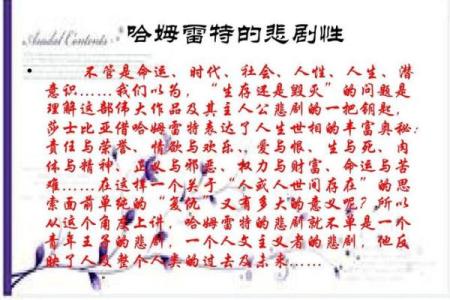 哈姆雷特的悲剧性
• 不管是命运、时代、社会、人性、人生、潜
意识……我们以为，“生存还是毁灭”的问题是
理解这部伟大作品及其主人公悲剧的一把钥匙，
莎士比亚借哈姆雷特表达了人生世相的丰富奥秘：
责任与荣誉、情欲与欢乐、爱与恨、生与死、肉
体与精神、正义与邪恶、权力与财富、命运与苦
难……在这样一个关于“个或人世间存在”的思
索面前单纯的“复仇”又有多大的意义呢？所以
从这个角度上件，哈姆雷特的悲剧就不单是一个
青年王子的悲剧，一个人文主义者的悲剧，他反
映了人及整个人类的过去及未来……